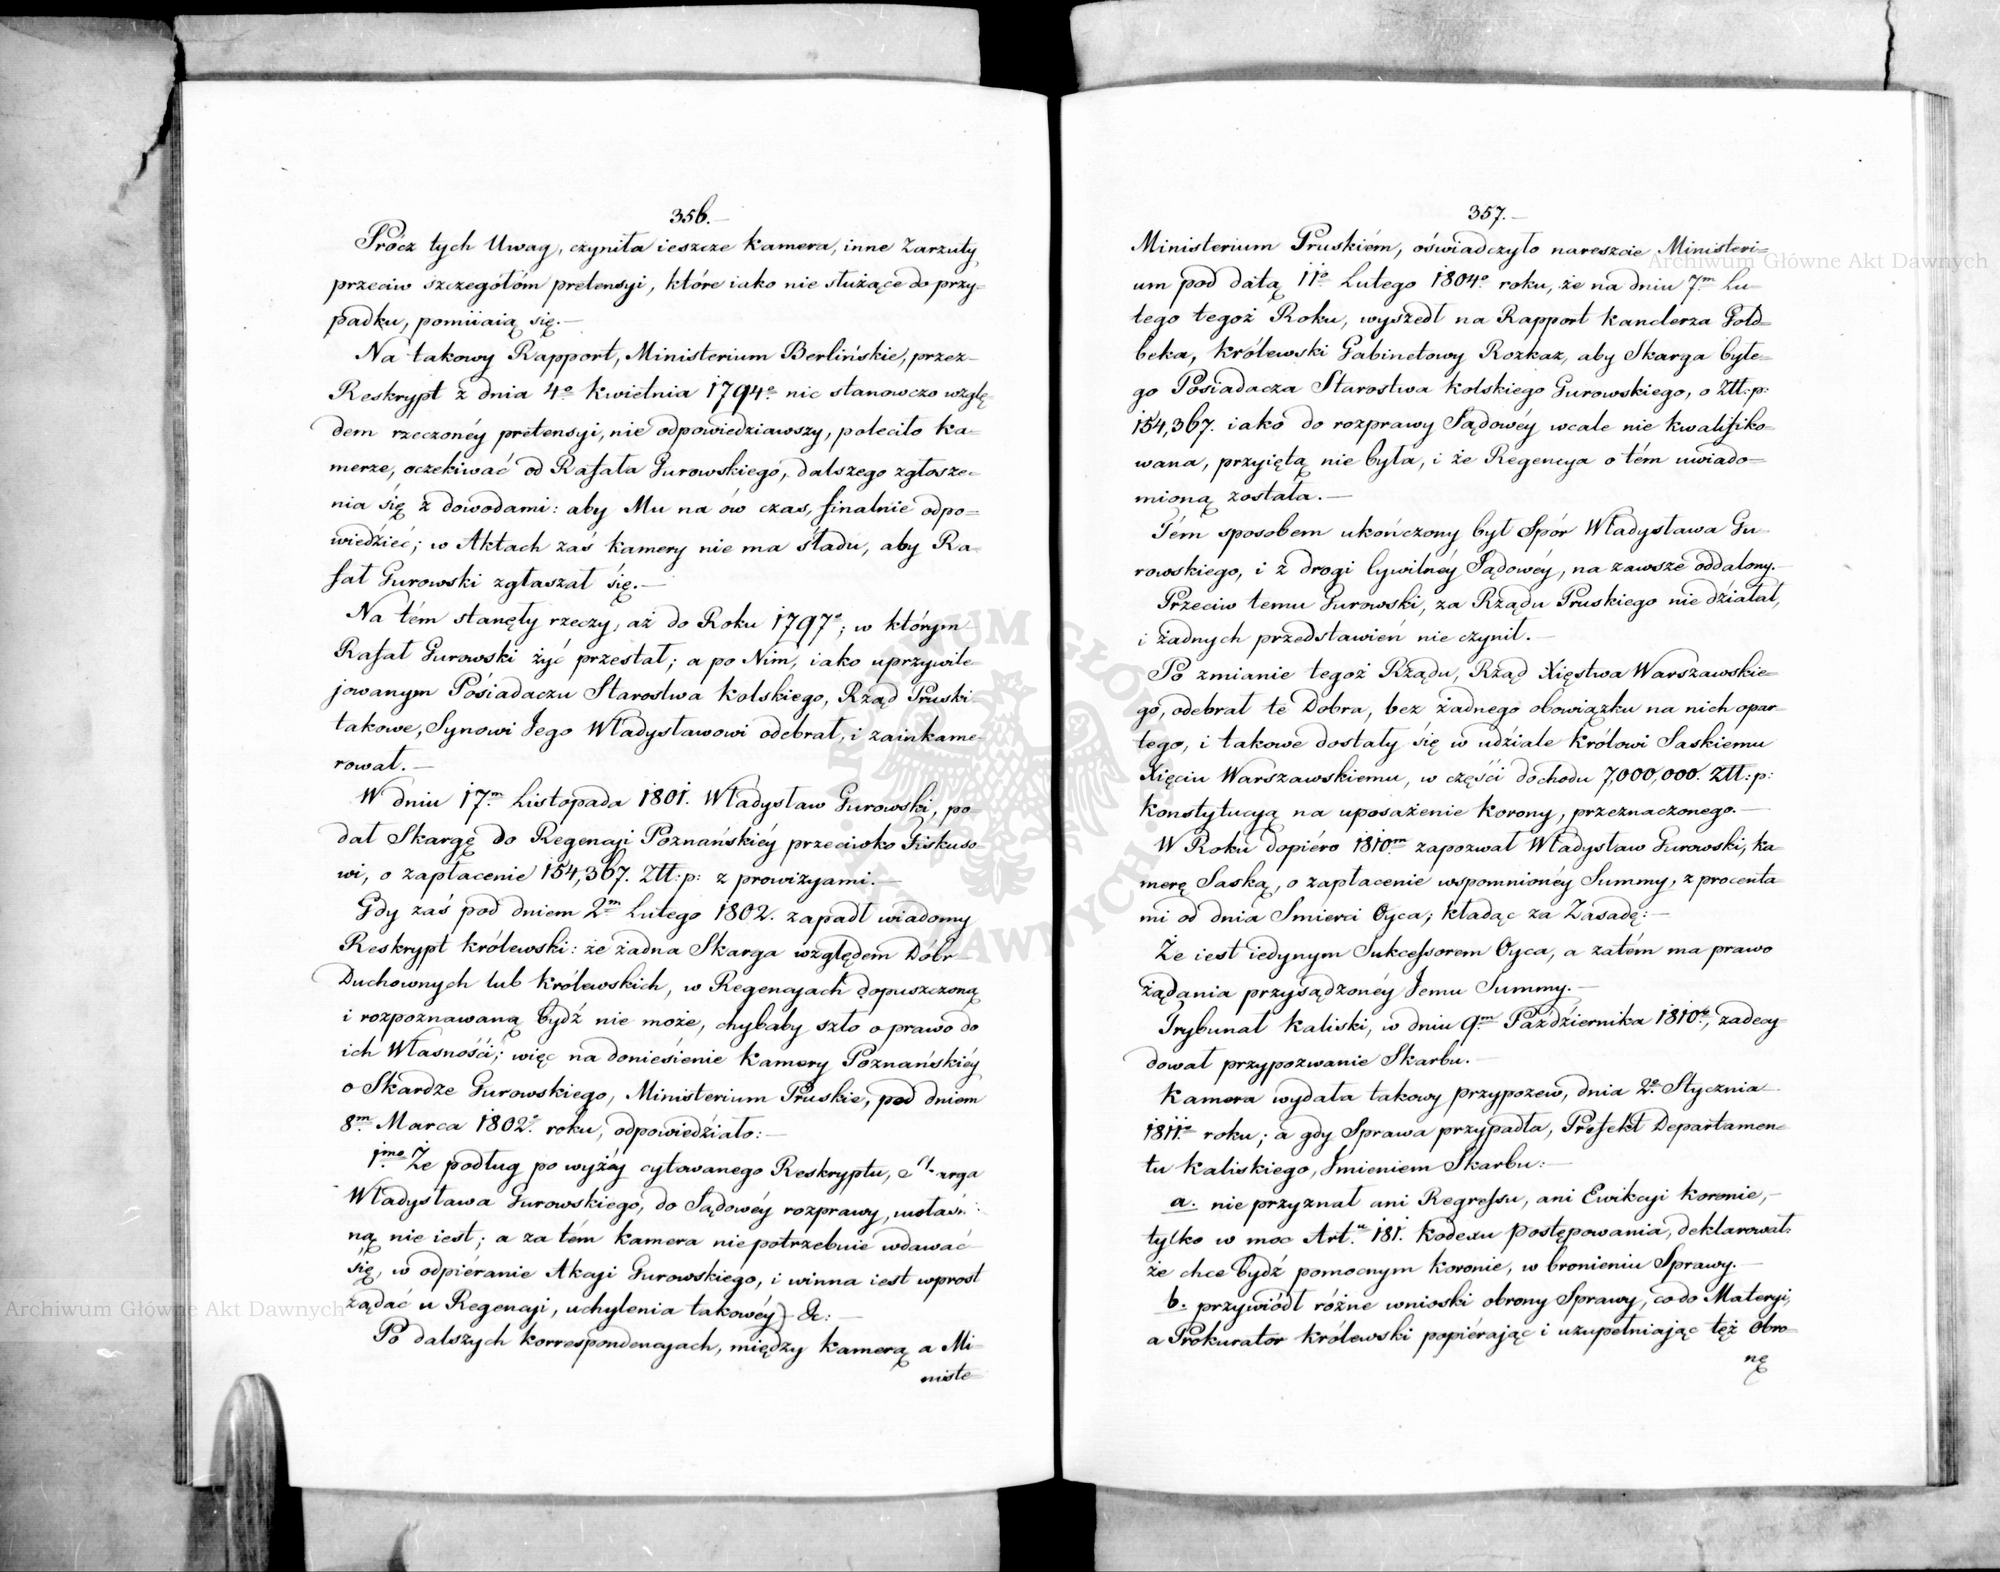 356.—
Prócz tych Uwag, czyniła ieszcze Kamera, inne Zarzuty,
przeciw szczegółóm pretensyi, które iako nie służące do przy=
padku, pomiiaią się.—
Na takowy Rapport, Ministerium Berlińskie, przez
Reskrypt z dnia 4º Kwietnia 1794º nic stanowczo wzglę=
dem rzeczonéy pretensyi, nie odpowiedziawszy, poleciło Ka=
merze, oczekiwać od Rafała Gurowskiego, dalszego zgłosze=
nia się z dowodami: aby Mu na ów czas, finalnie odpo=
wiedzieć; w Aktach zaś Kamery nie ma śladu, aby Ra=
fał Gurowski zgłaszał się.—
Na tém stanęły rzeczy, aż do Roku 1797º; w którym
Rafał Gurowski żyć przestał; a po Nim, iako uprzywile=
jowanym Posiadaczu Starostwa Kolskiego, Rząd Pruski
takowe, Synowi Jego Władysławowi odebrał, i zainkame=
rował.—
W dniu 17m Listopada 1801. Władysław Gurowski, po=
dał Skargę do Regencyi Poznańskiéy przeciwko Fiskuso=
wi, o zapłacenie 154,367. Złł:p: z prowizyami.—
Gdy zaś pod dniem 2m Lutego 1802. zapadł wiadomy
Reskrypt Królewski: że żadna Skarga względem Dóbr
Duchownych lub Królewskich, w Regencyach dopuszczoną
i rozpoznawaną bydź nie może, chybaby szło o prawo do
ich Własności; więc na doniesienie Kamery Poznańskiéy
o Skardze Gurowskiego, Ministerium Pruskie, pod dniem
8m Marca 1802º roku, odpowiedziało:—
1mo Że podług powyżéy cytowanego Reskryptu, Skarga
Władysława Gurowskiego, do Sądowéy rozprawy,
ną nie iest; a za tém Kamera niepotrzebnie wdawać
się, w odpieranie Akcyi Gurowskiego, i winna iest wprost
żądać u Regencyi, uchylenia takowéy) &:—
Po dalszych korrespondencyach, między Kamerą a Mi=
niste=
357.—
Ministerium Pruskiém, oświadczyło nareszcie Ministeri=
um pod datą 11º Lutego 1804º roku, że na dniu 7m Lu=
tego tegoż Roku, wyszedł na Rapport Kanclerza Gold=
beka, Królewski Gabinetowy Rozkaz, aby Skarga byłe=
go Posiadacza Starostwa Kolskiego Gurowskiego, o Złł:p:
154,367. iako do rozprawy Sądowéy wcale nie kwalifiko=
wana, przyiętą nie była, i że Regencya o tém uwiado=
mioną została.—
Tém sposobem ukończony był Spór Władysława Gu=
rowskiego, i z drogi Cywilnéy Sądowéy, na zawsze oddalony.—
Przeciw temu Gurowski, za Rządu Pruskiego nie działał,
i żadnych przedstawień nie czynił.—
Po zmianie tegoż Rządu, Rząd Xięstwa Warszawskie=
go, odebrał te Dobra, bez żadnego obowiązku na nich opar=
tego, i takowe dostały się w udziale Królowi Saskiemu
Xięciu Warszawskiemu, w części dochodu 7,000,000. Złł:p:
Konstytucyą na uposażenie Korony, przeznaczonego.—
W Roku dopiéro 1810m zapozwał Władysław Gurowski, Ka=
merę Saską, o zapłacenie wspomnionéy Summy, z procenta=
mi od dnia Smierci Oyca; kładąc za Zasadę:—
Że iest iedynym Sukcessorem Oyca, a zatém ma prawo
żądania przysądzonéy Jemu Summy.—
Trybunał Kaliski, w dniu 9m Października 1810º, zadecy=
dował przypozwanie Skarbu.—
Kamera wydała takowy przypozew, dnia 2º Stycznia
1811º roku; a gdy Sprawa przypadła, Prefekt Departamen=
tu Kaliskiego, Imieniem Skarbu:—
a. nie przyznał ani Regressu, ani Ewikcyi Koronie,—
tylko w moc Art.u 181. Kodexu postępowania, deklarował:
że chce bydź pomocnym Koronie, w bronieniu Sprawy.—
b. przywiódł różne wnioski obrony Sprawy, co do Materyi,
a Prokurator Królewski popiérając i uzupełniając téż Obro=
nę
Archiwum Główne Akt Dawnych
Archiwum Główne Akt Dawnych
ARCHIWUM GŁÓWNE AKT DAWNYCH